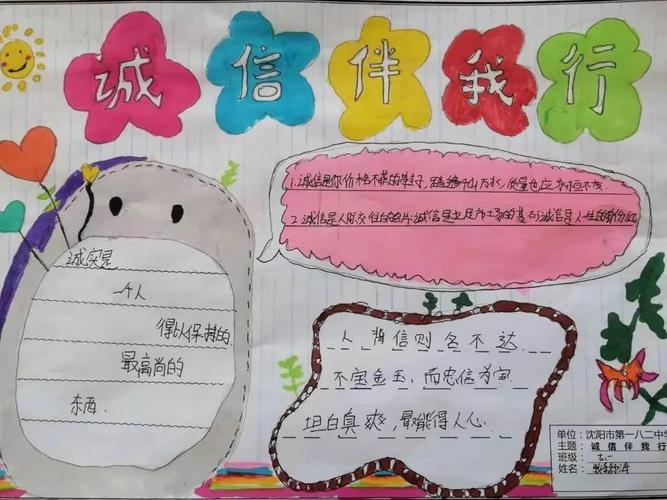 诚信伴我行
1.诚信是你价格不菲的鞋子,踏遍千山万水,质量也应永恒不变.
2.诚信是人际交往的名片,诚信是立足市工场的基石,诚信是人生的身份证
诚实是
一个人
得以保持的
最高尚的
东西.
人背信则名不达.
不宝金玉,而忠信为宝.
坦白臭爽,最能得人心.
单位:沈阳市第一八二中学
主题:诚信伴我行
班级:
姓名: